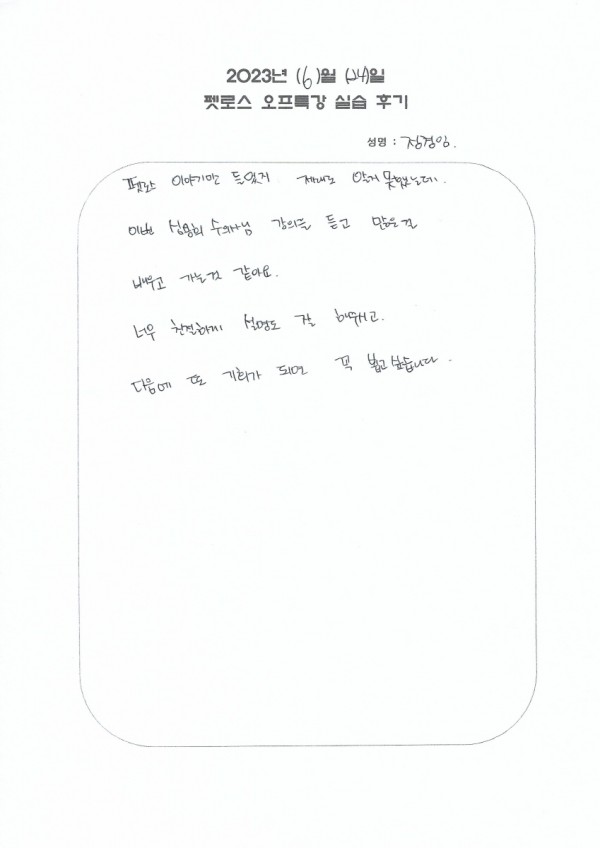 2023년 (6)월 (24)일
펫로스 오프특강 실습 후기
성명 : 정경임.
펫로스 이야기만 들었지 제대로 알지 못했는데.
이번 심용희 수의사님 강의를 듣고 많은걸
배우고 가는것 같아요.
너무 친절하게 설명도 잘 해주시고.
다음에 또 기회가 되면 꼭 뵙고싶습니다.